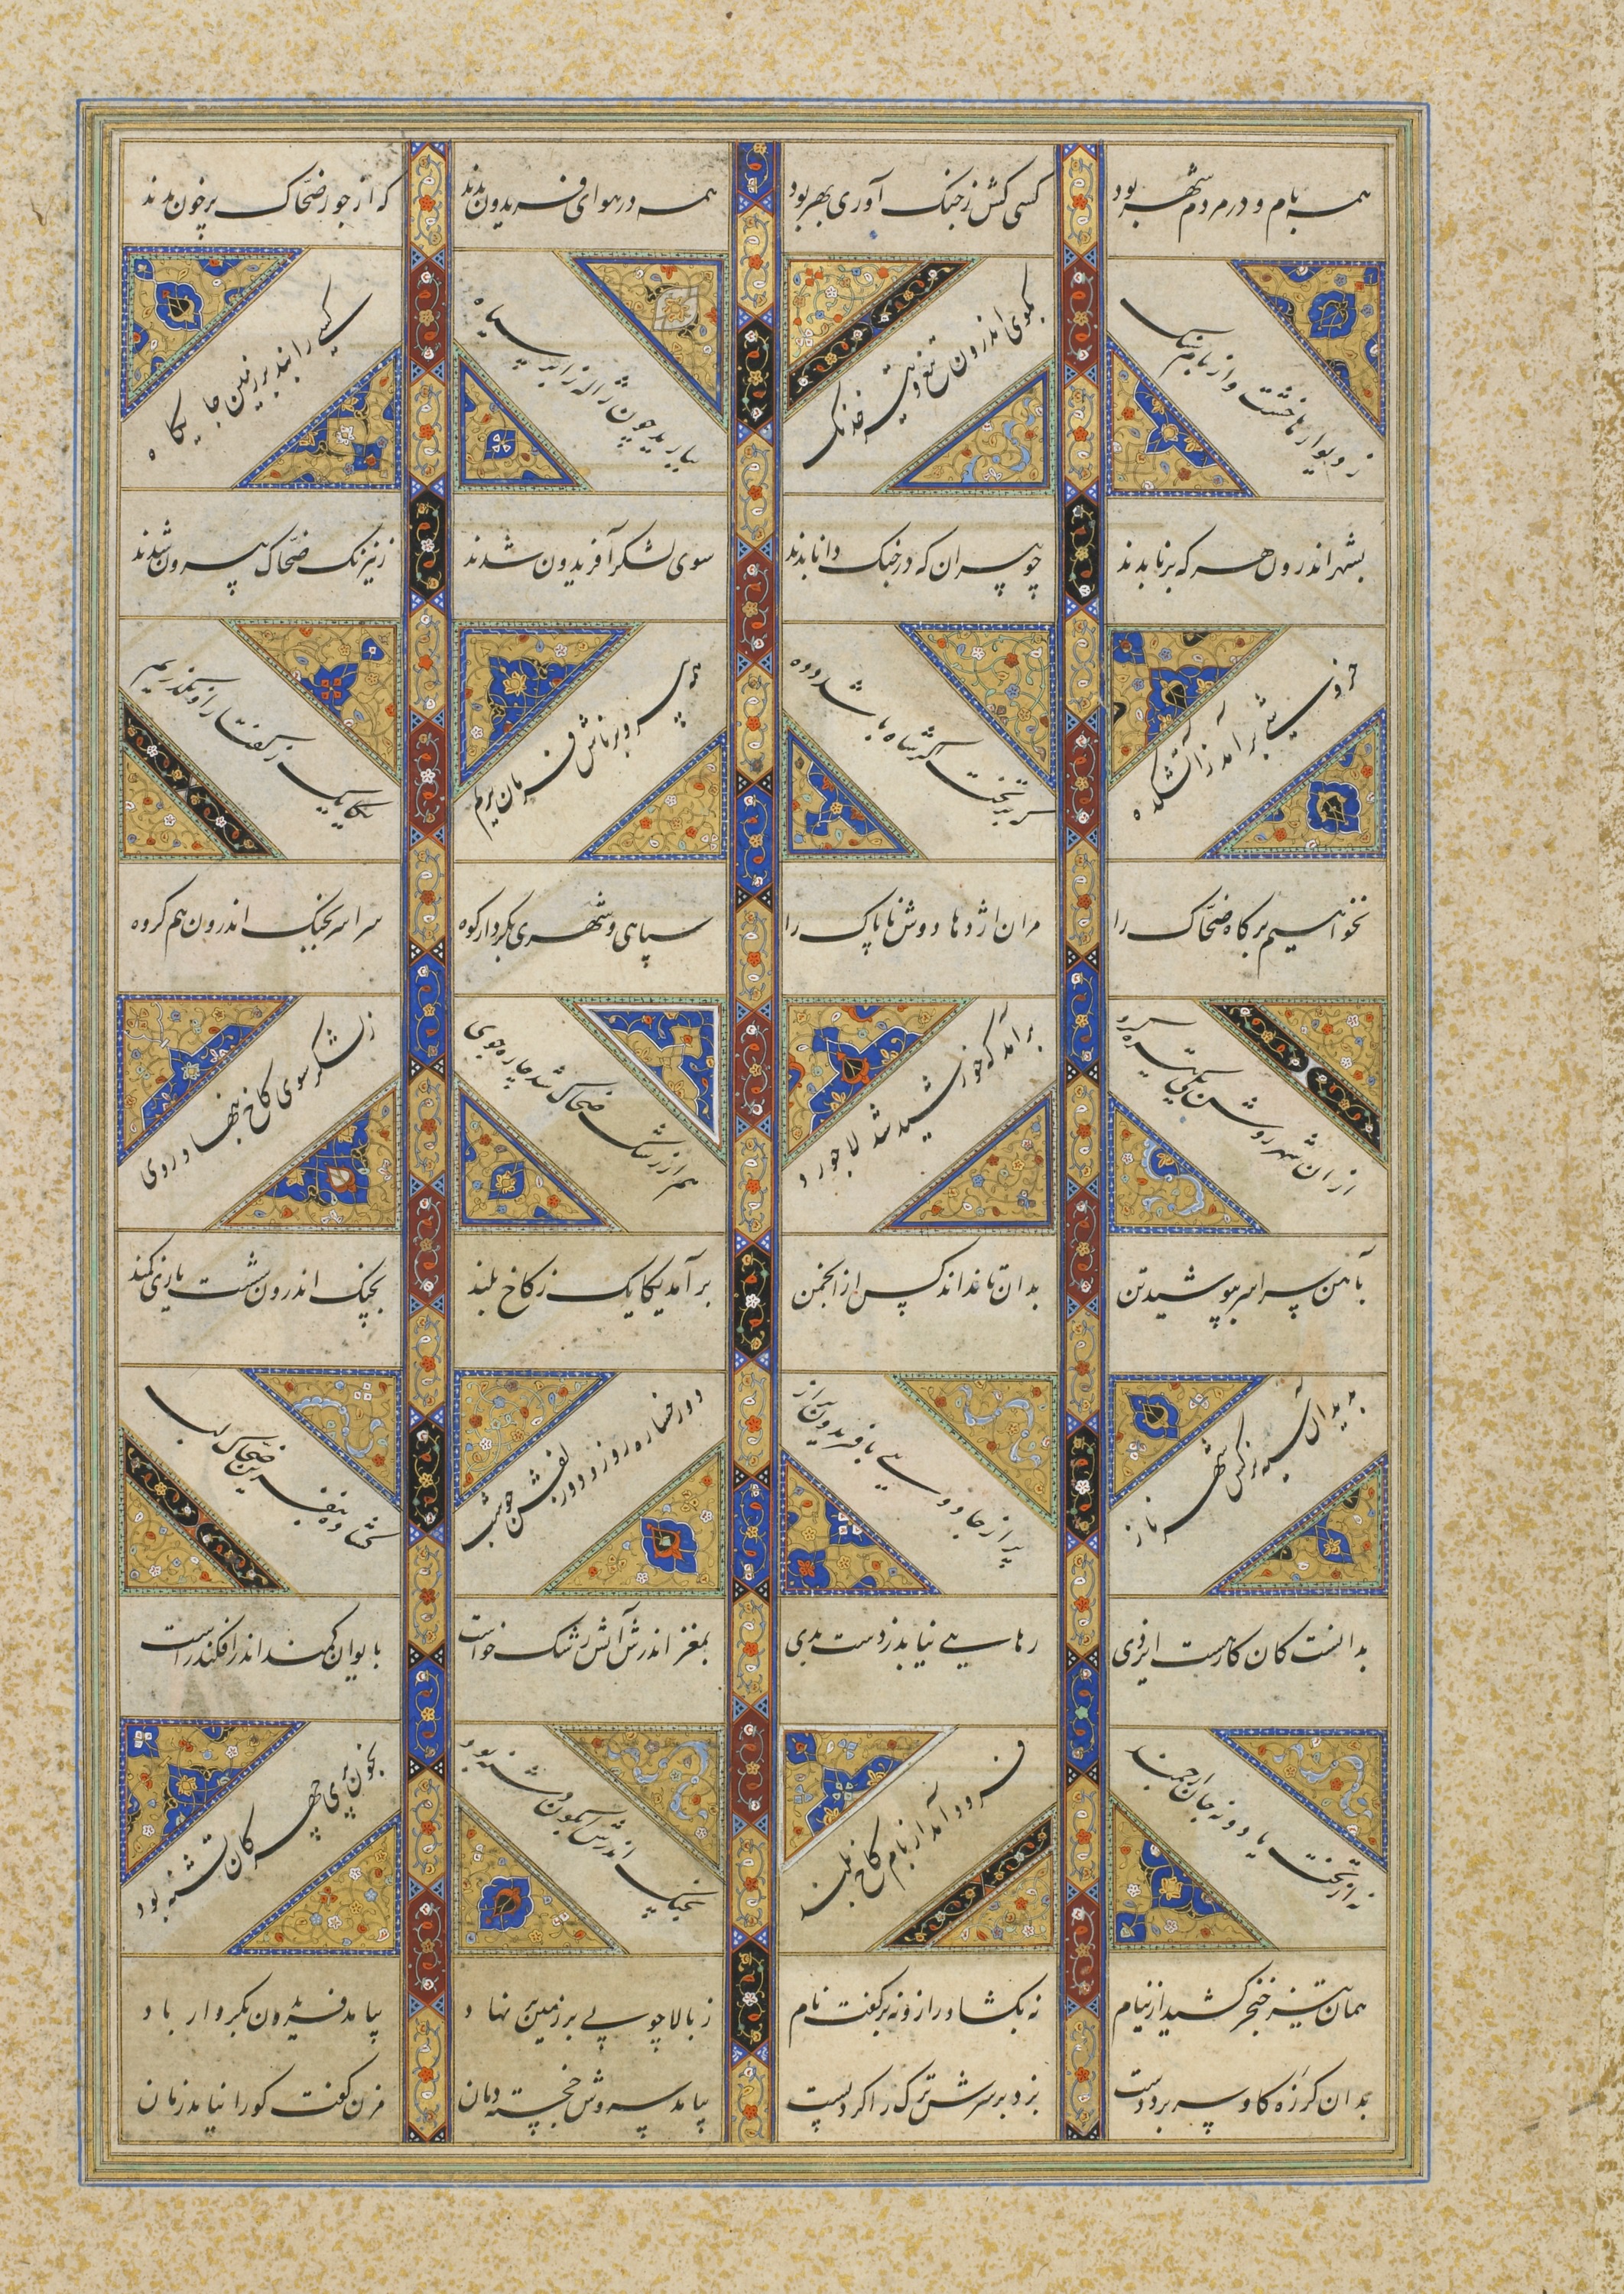 همه بام و در مردم شهر بود کسی کش ز جنک آوری بهر بود همه در هوای فریدون بدند که از جور ضحاک پر خون بدند
ز دیوارها خشت و از بام سنک بکوی اندرون تیغ و تیر خدنک ببارید چون ژاله ز ابر سیاه کسی را نبد بر زمین جایکاه
بشهر اندرون هر که برنا بدند چو پیران که در جنک دانا بدند سوی لشکر آفریدون شدند ز نیرنک ضحاک بیرون شدند
خروشی بر آمد ز آتشکده که بر تخت اگر شاه باشد دده همه پیر و برناش فرمان بریم یکایک ز گفتار او نگذریم
نخواهیم بر کاه ضحاک را مران اژدها دوش ناپاک را سپاهی و شهری بکردار کوه سراسر بجنک اندرون هم کروه
از ان شهر روشن یکی تیره کرد بر آمد که خورشید شد لاجورد هم از رشک ضحاک شد چاره جوی ز لشکر سوی کاخ بنهاد روی
بآهن سراسر بپوشید تن بدان تا نداند کس از انجمن بر آمد یکایک ز کاخ بلند بچنک اندرون شست یازی کمند
بدید آن سیه نرگس شهرناز پر از جادویی با فریدون براز دو رخساره روز و دو زلفش چو شب گشاده بنفرین ضحاک لب
بدانست کان کارست ایزدی رهایی نیابد ز دست بدی بمغز اندرش آتش رشک خواست بایوان کمند اندر افکند راست
نه از تخت یاد و نه جان ارجمند فرود آمد از بام کاخ بلند بچنک اندرش آبگون دشنه بود بخون پری چهرکان تشنه بود
همان تیز خنجر کشید از نیام نه بکشاد راز و نه بر کفت نام ز بالا چو پی بر زمین بر نهاد بیامد فریدون بکردار باد
بدان کرزه کاوسر برد دست بزد بر سرش ترک را کرد پست بیامد سروش خجسته دمان مزن کفت کورا نیامد زمان